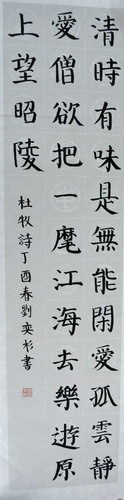 清時有味是無能閑愛孤雲靜
愛僧欲把一麾江海去樂遊原
上望昭陵
杜牧詩丁酉春劉奕杉書